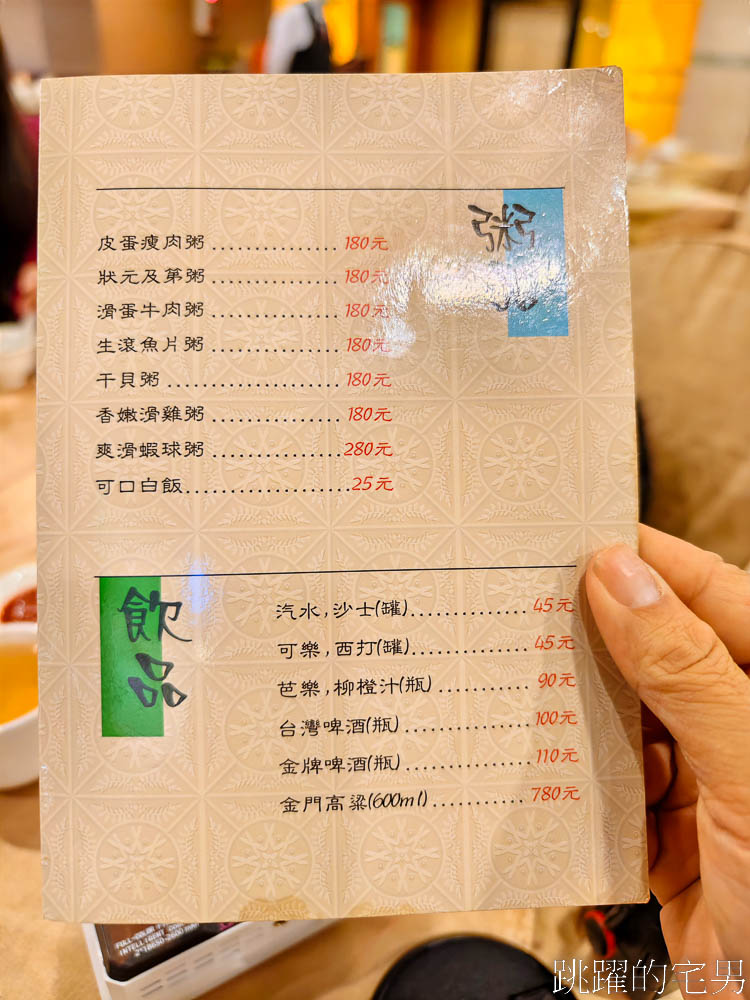 粥品
皮蛋瘦肉粥 ................ 180元
狀元及第粥 ................ 180元
滑蛋牛肉粥 ................ 180元
生滾魚片粥 ................ 180元
干貝粥 ...................... 180元
香嫩滑雞粥 ................ 180元
爽滑蝦球粥 ................280元
可口白飯....................25元
飲品
汽水,沙士(罐).............. 45元
可樂,西打(罐).............. 45元
芭樂,柳橙汁(瓶) ........... 90元
台灣啤酒(瓶) ............... 100元
金牌啤酒(瓶) ............... 110元
金門高粱(600ml) ........... 780元
跳躍的宅男